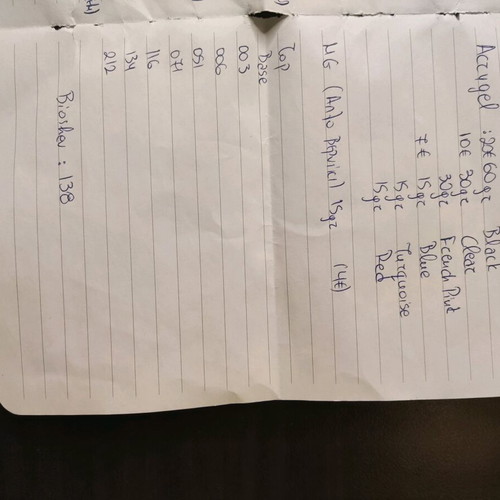 Acrygel : 20€ 60gr Black
10€ 30gr Clear
30gr French Pink
7€ 15gr Blue
15gr Turquoise
15gr Red
MG 15gr (4€)
Top
Base
003
006
051
071
116
134
212
: 138